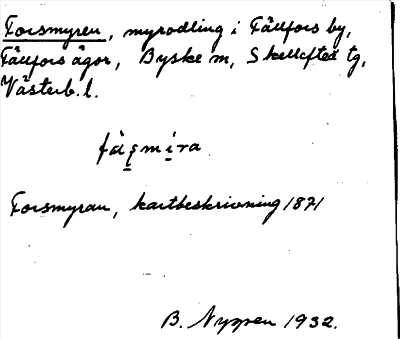 Forsmyren, myrodling i Fällfors by,
Fällfors ägor, Byske m, Skellefteå tg,
Västerb. l.
Forsmyran, kartbeskrivning 1871
B. Nyppen 1932.